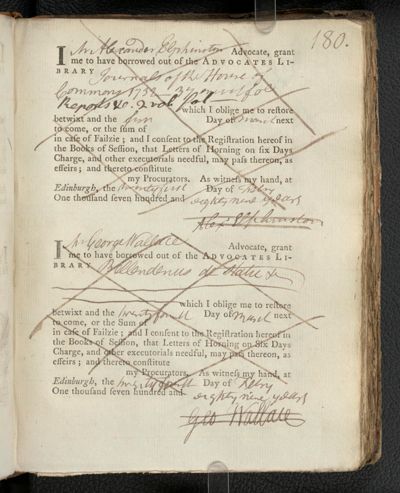 180.
I Mr Alexander Elphinston Advocate, grant
me to have borrowed out of the ADVOCATES LI-
BRARY Journals of the House of
Commons 173
Reports &c. 2 vol. fol. which I oblige me to restore
betwixt and the first Day of March next
to come, or the sum of
in case of Failzie; and I consent to the Registration hereof in
the Books of Session, that Letters of Horning on six Days
Charge, and other executorials needful, may pass thereon, as
effeirs; and thereto constitute
my Procurators. As witness my hand, at
Edinburgh, the twenty first Day of Febry
One thousand seven hundred and eighty nine years
Alexr Elphinston
I Mr George Wallace Advocate, grant
me to have borrowed out of the ADVOCATES LI-
BRARY Bellendenus de Statu &c
which I oblige me to restore
betwixt and the twenty fourth Day of March next
to come, or the Sum of
in case of Failzie; and I consent to the Registration hereof in
the Books of Session, that Letters of Horning on Six Days
Charge, and other executorials needful, may pass thereon, as
effeirs; and thereto constitute
my Procurators. As witness my hand, at
Edinburgh, the twenty fourth Day of Febry
One thousand seven hundred and eighty nine years
Geo Wallace